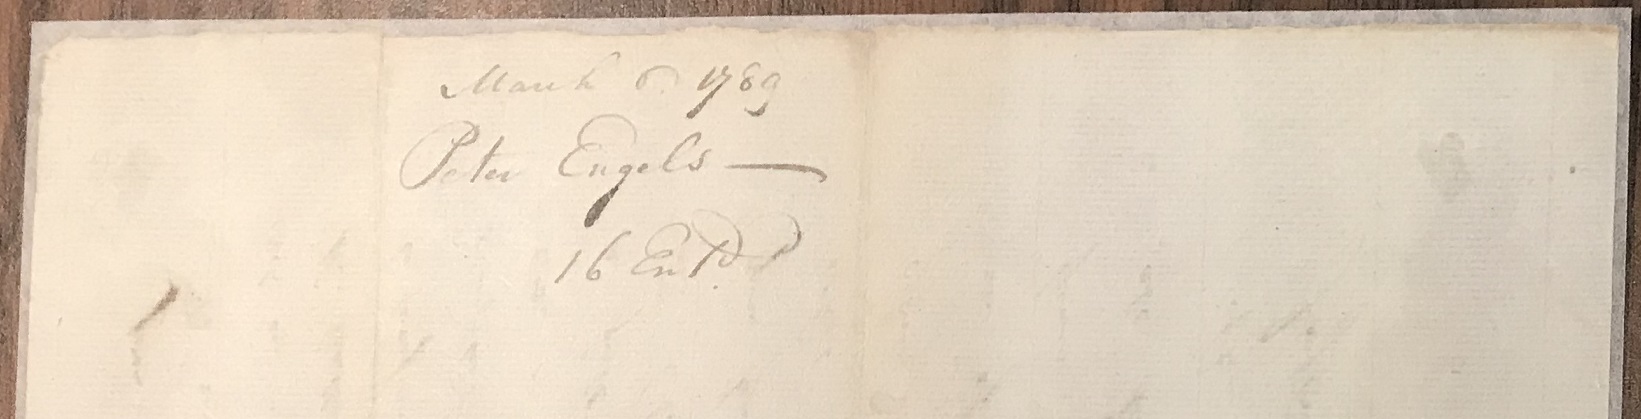 March 6. 1789
Peter Engels —
16 Entd